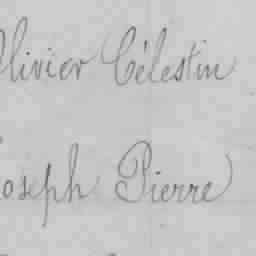 Olivier Célestin
Joseph Pierre